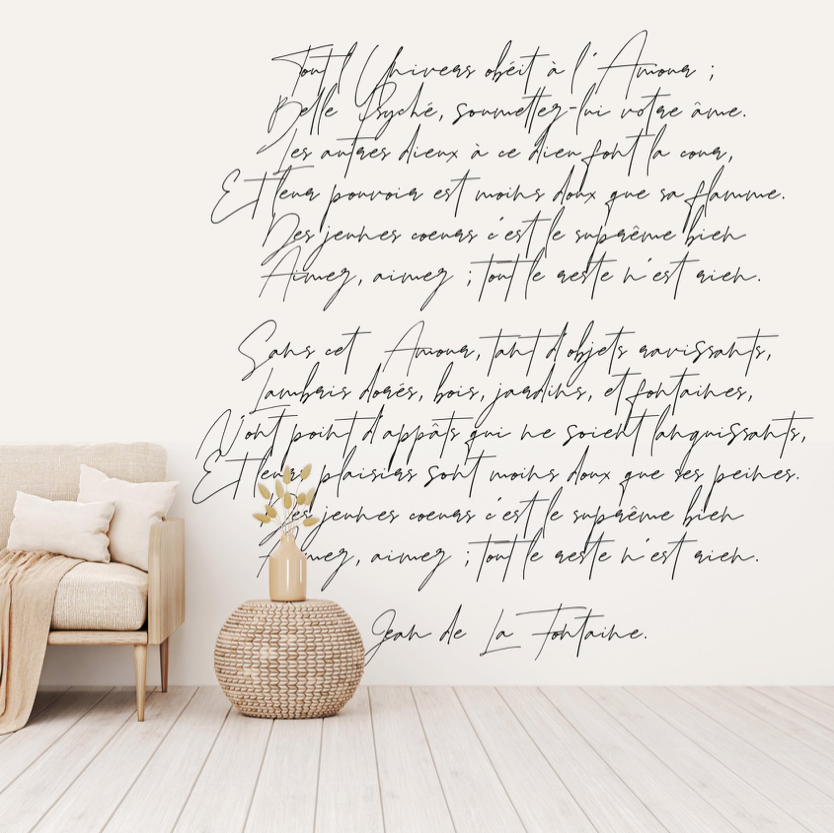 Tout l'Univers obéit à l'Amour ;
Belle Psyché, soumettez-lui votre âme.
Les autres dieux à ce dieu font la cour,
Et leur pouvoir est moins doux que sa flamme.
Des jeunes coeurs c'est le suprême bien
Aimez, aimez ; tout le reste n'est rien.
Sans cet Amour, tant d'objets ravissants,
Lambris dorés, bois, jardins, et fontaines,
N'ont point d'appâts qui ne soient languissants,
Et leurs plaisirs sont moins doux que ses peines.
Des jeunes coeurs c'est le suprême bien
Aimez, aimez ; tout le reste n'est rien.
Jean de La Fontaine.